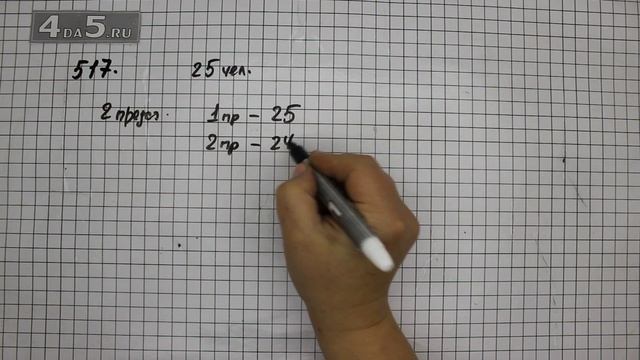 4DA5.RU
517. 25 чел.
2 предст. 1 пр – 25
2 пр – 24